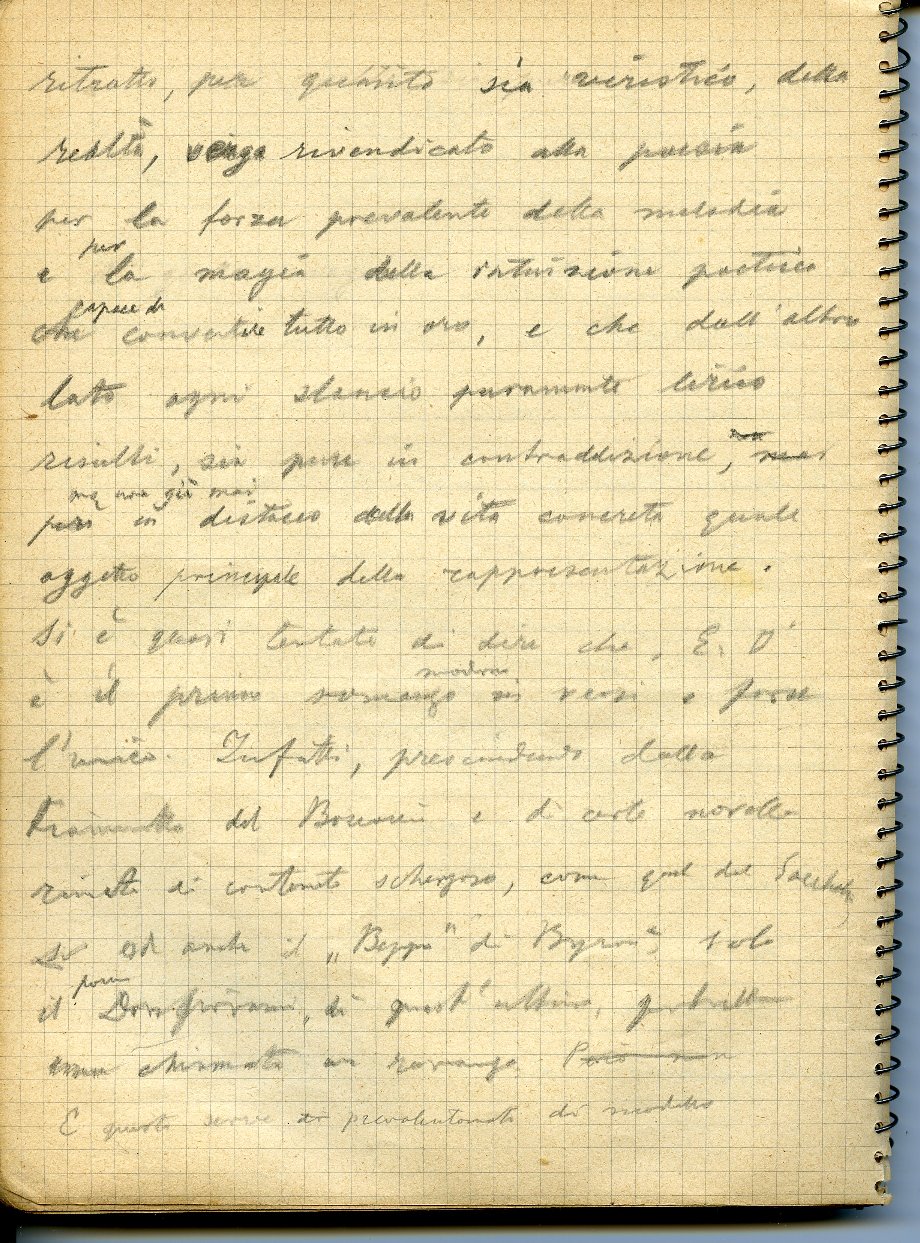 ritratto, per quanto sia veristico, della
realtà, venga rivendicato alla poesia
per la forza prevalente della melodia
per
e la magia della intuizione poetica
capace di
che convertire tutto in oro, e che dall'altro
lato ogni slancio puramente lirico
risulti, sia pure in contraddizione, mai
ma non già mai
però in distacco dalla vita concreta quale
oggetto principale della rappresentazione.
Si è quasi tentati di dire che, E. O.
moderno
è il primo romanzo in versi e forse
l'unico. Infatti, prescindendo dalla
del Boccaccio e di certe novelle
rimate di contenuto scherzoso, come quel del
ed anche il „Beppo" di Byron, solo
poema
il Don Giovanni, di quest'ultimo,
chiamato un romanzo
E questo serve da prevalentemente di modello